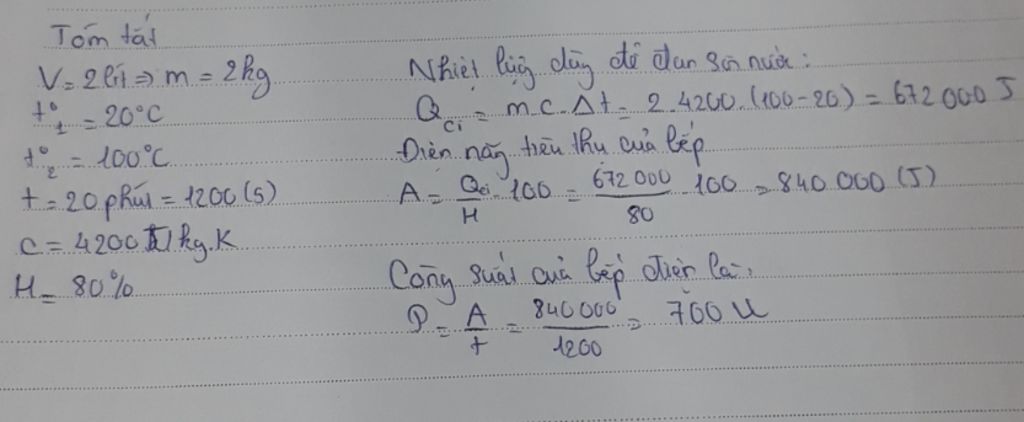 Tóm tắt
V = 2 lít ⇒ m = 2kg
t°₁ = 20°C
t°₂ = 100°C
t = 20 phút = 1200 (s)
C = 4200 J/kg.K
H = 80%
Nhiệt lượng dùng để đun sôi nước:
Qci = m.c.Δt = 2.4200.(100-20) = 672000 J
Điện năng tiêu thụ của bếp
A = Qci/H . 100 = 672000/80 . 100 = 840 000 (J)
Công suất của bếp điện là:
P = A/t = 840000/1200 = 700 W